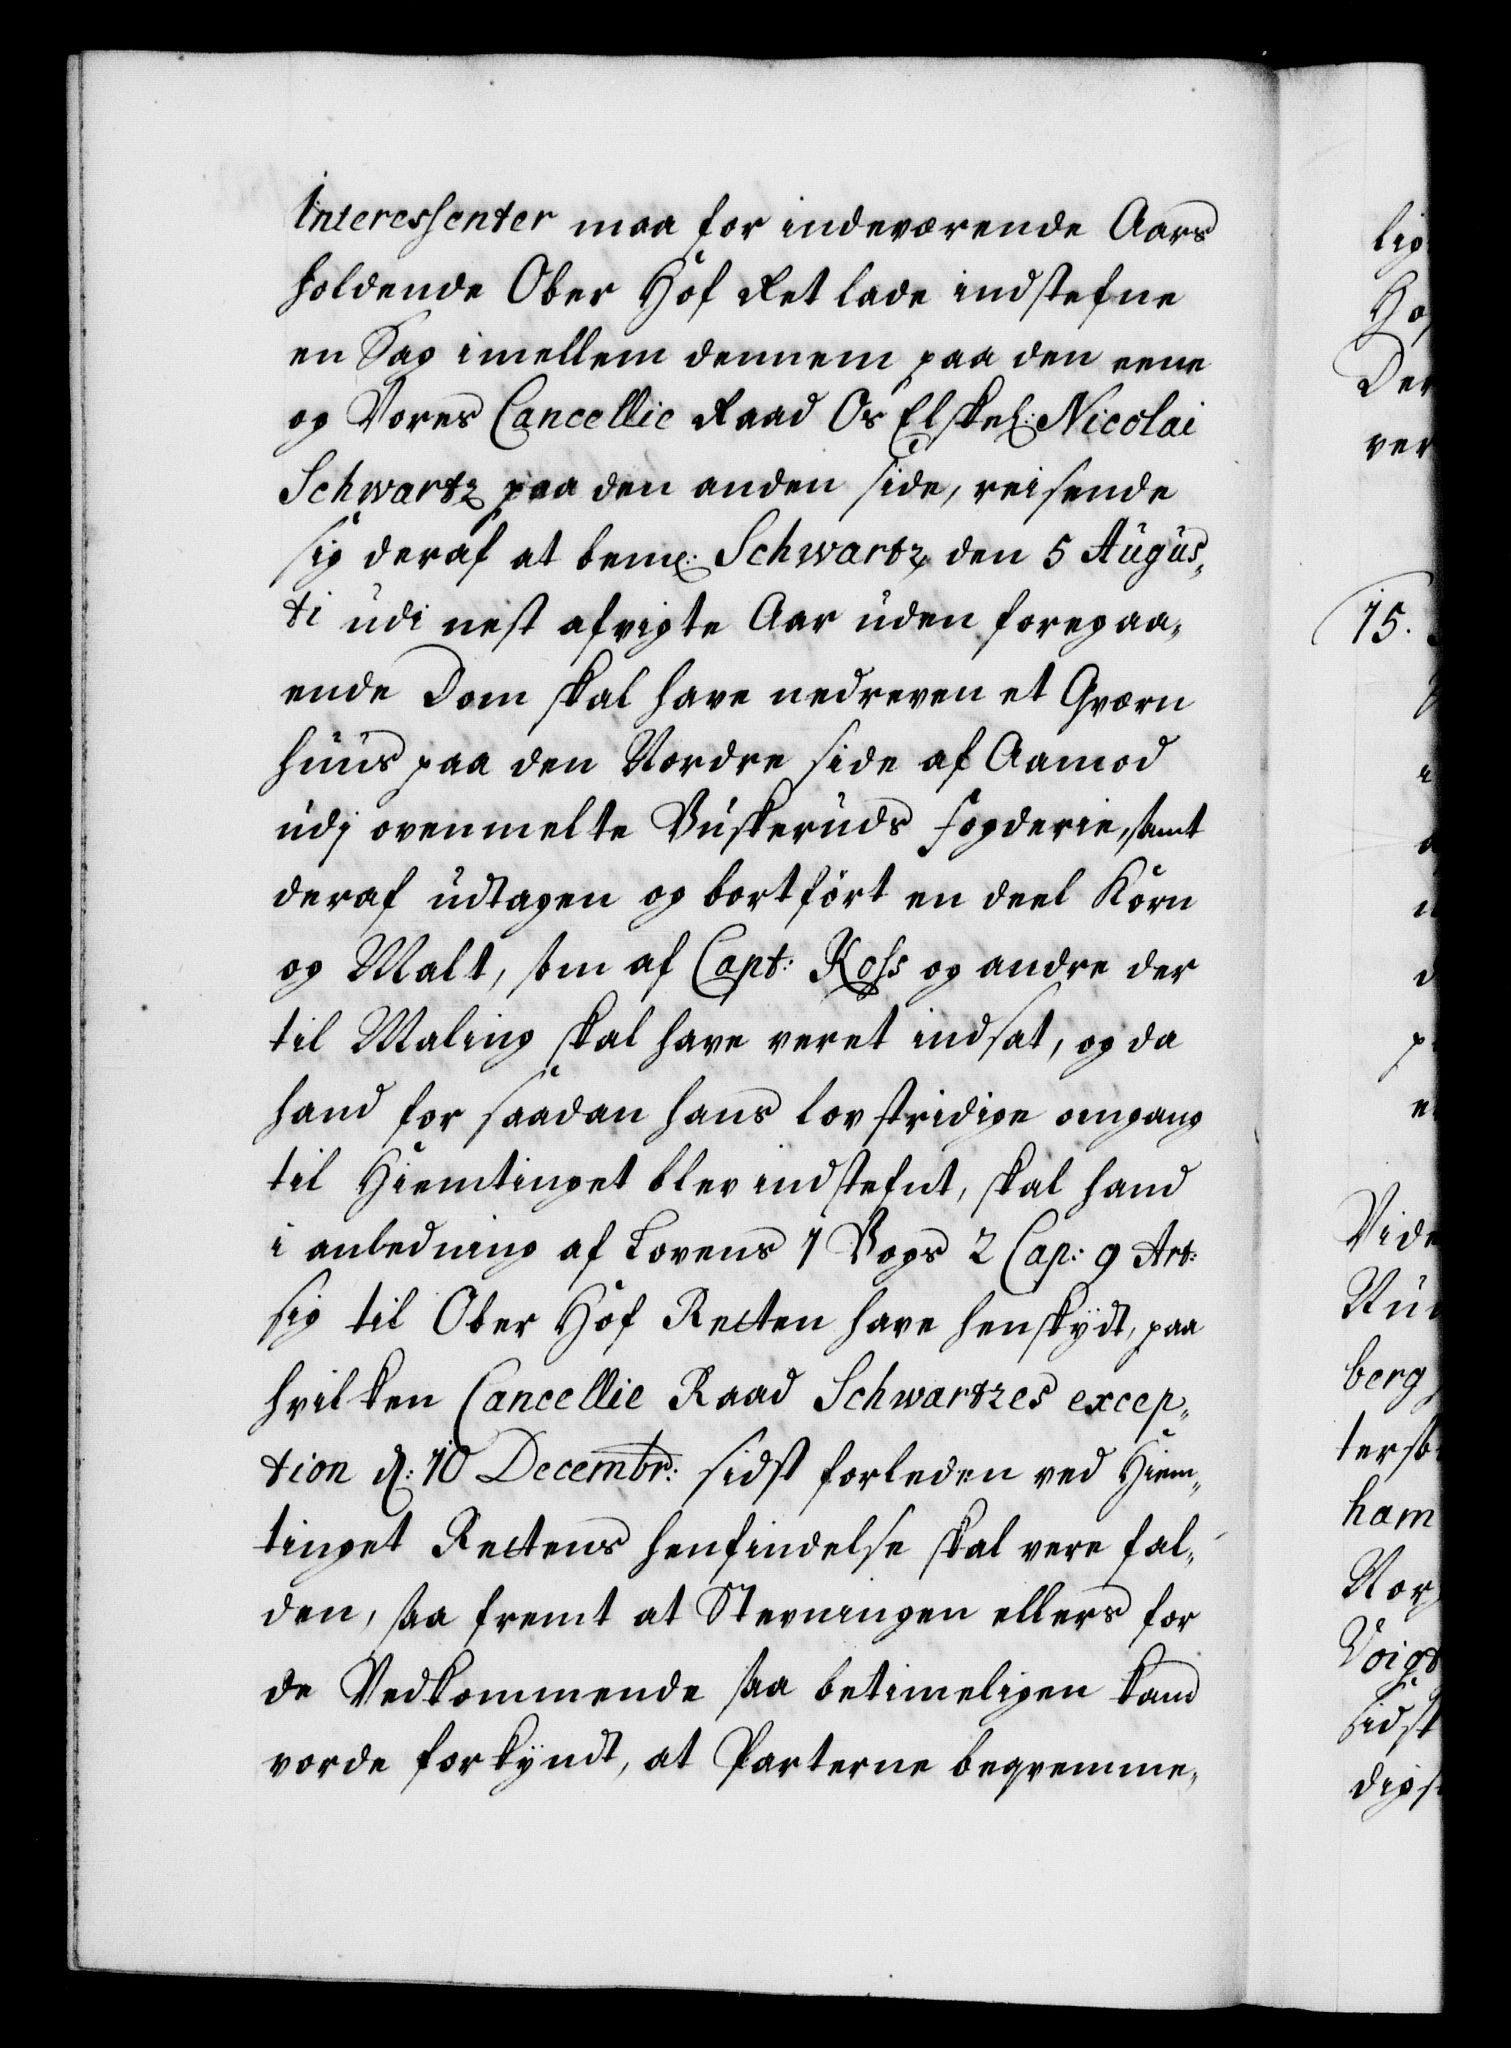 Interessenter maa for indeværende Aars
holdende Ober Hof Ret lade indstefne
en Sag imellem dennem paa den eene
og Vores Cancellie Raad Os Elskel: Nicolai
Schwartz paa den anden side, reisende
sig deraf at bem: Schwartz den 5 Augus,,
ti udi nest afvigte Aar uden foregaa,,
ende Dom skal have nedreven et Qværn
huus paa den Nordre side af Aamod
udj ovenmelte Buskeruds fogderie, samt
deraf udtagen og bortført en deel Korn
og Malt, som af Capt: Koss og andre der
til Maling skal have veret indsat, og da
hand for saadan hans lovstridige omgang
til Hiemtinget blev indstefnt, skal hand
i anledning af Lovens 1 Bogs 2 Cap: 9 Art:
sig til Ober Hof Retten have henskydt, paa
hvilken Cancellie Raad Schwartzes excep,,
tion d: 10 Decembr: sidst forleden ved Hiem,,
tinget Rettens henfindelse skal vere fal,,
den, saa fremt at Stevningen ellers for
de Vedkommende saa betimeligen kand
vorde forkyndt, at Parterne beqvemme,,
lig
Hof
Der
ver
15.
Vide
berg
ters
ham
Nor
Voigt
sidst
digs